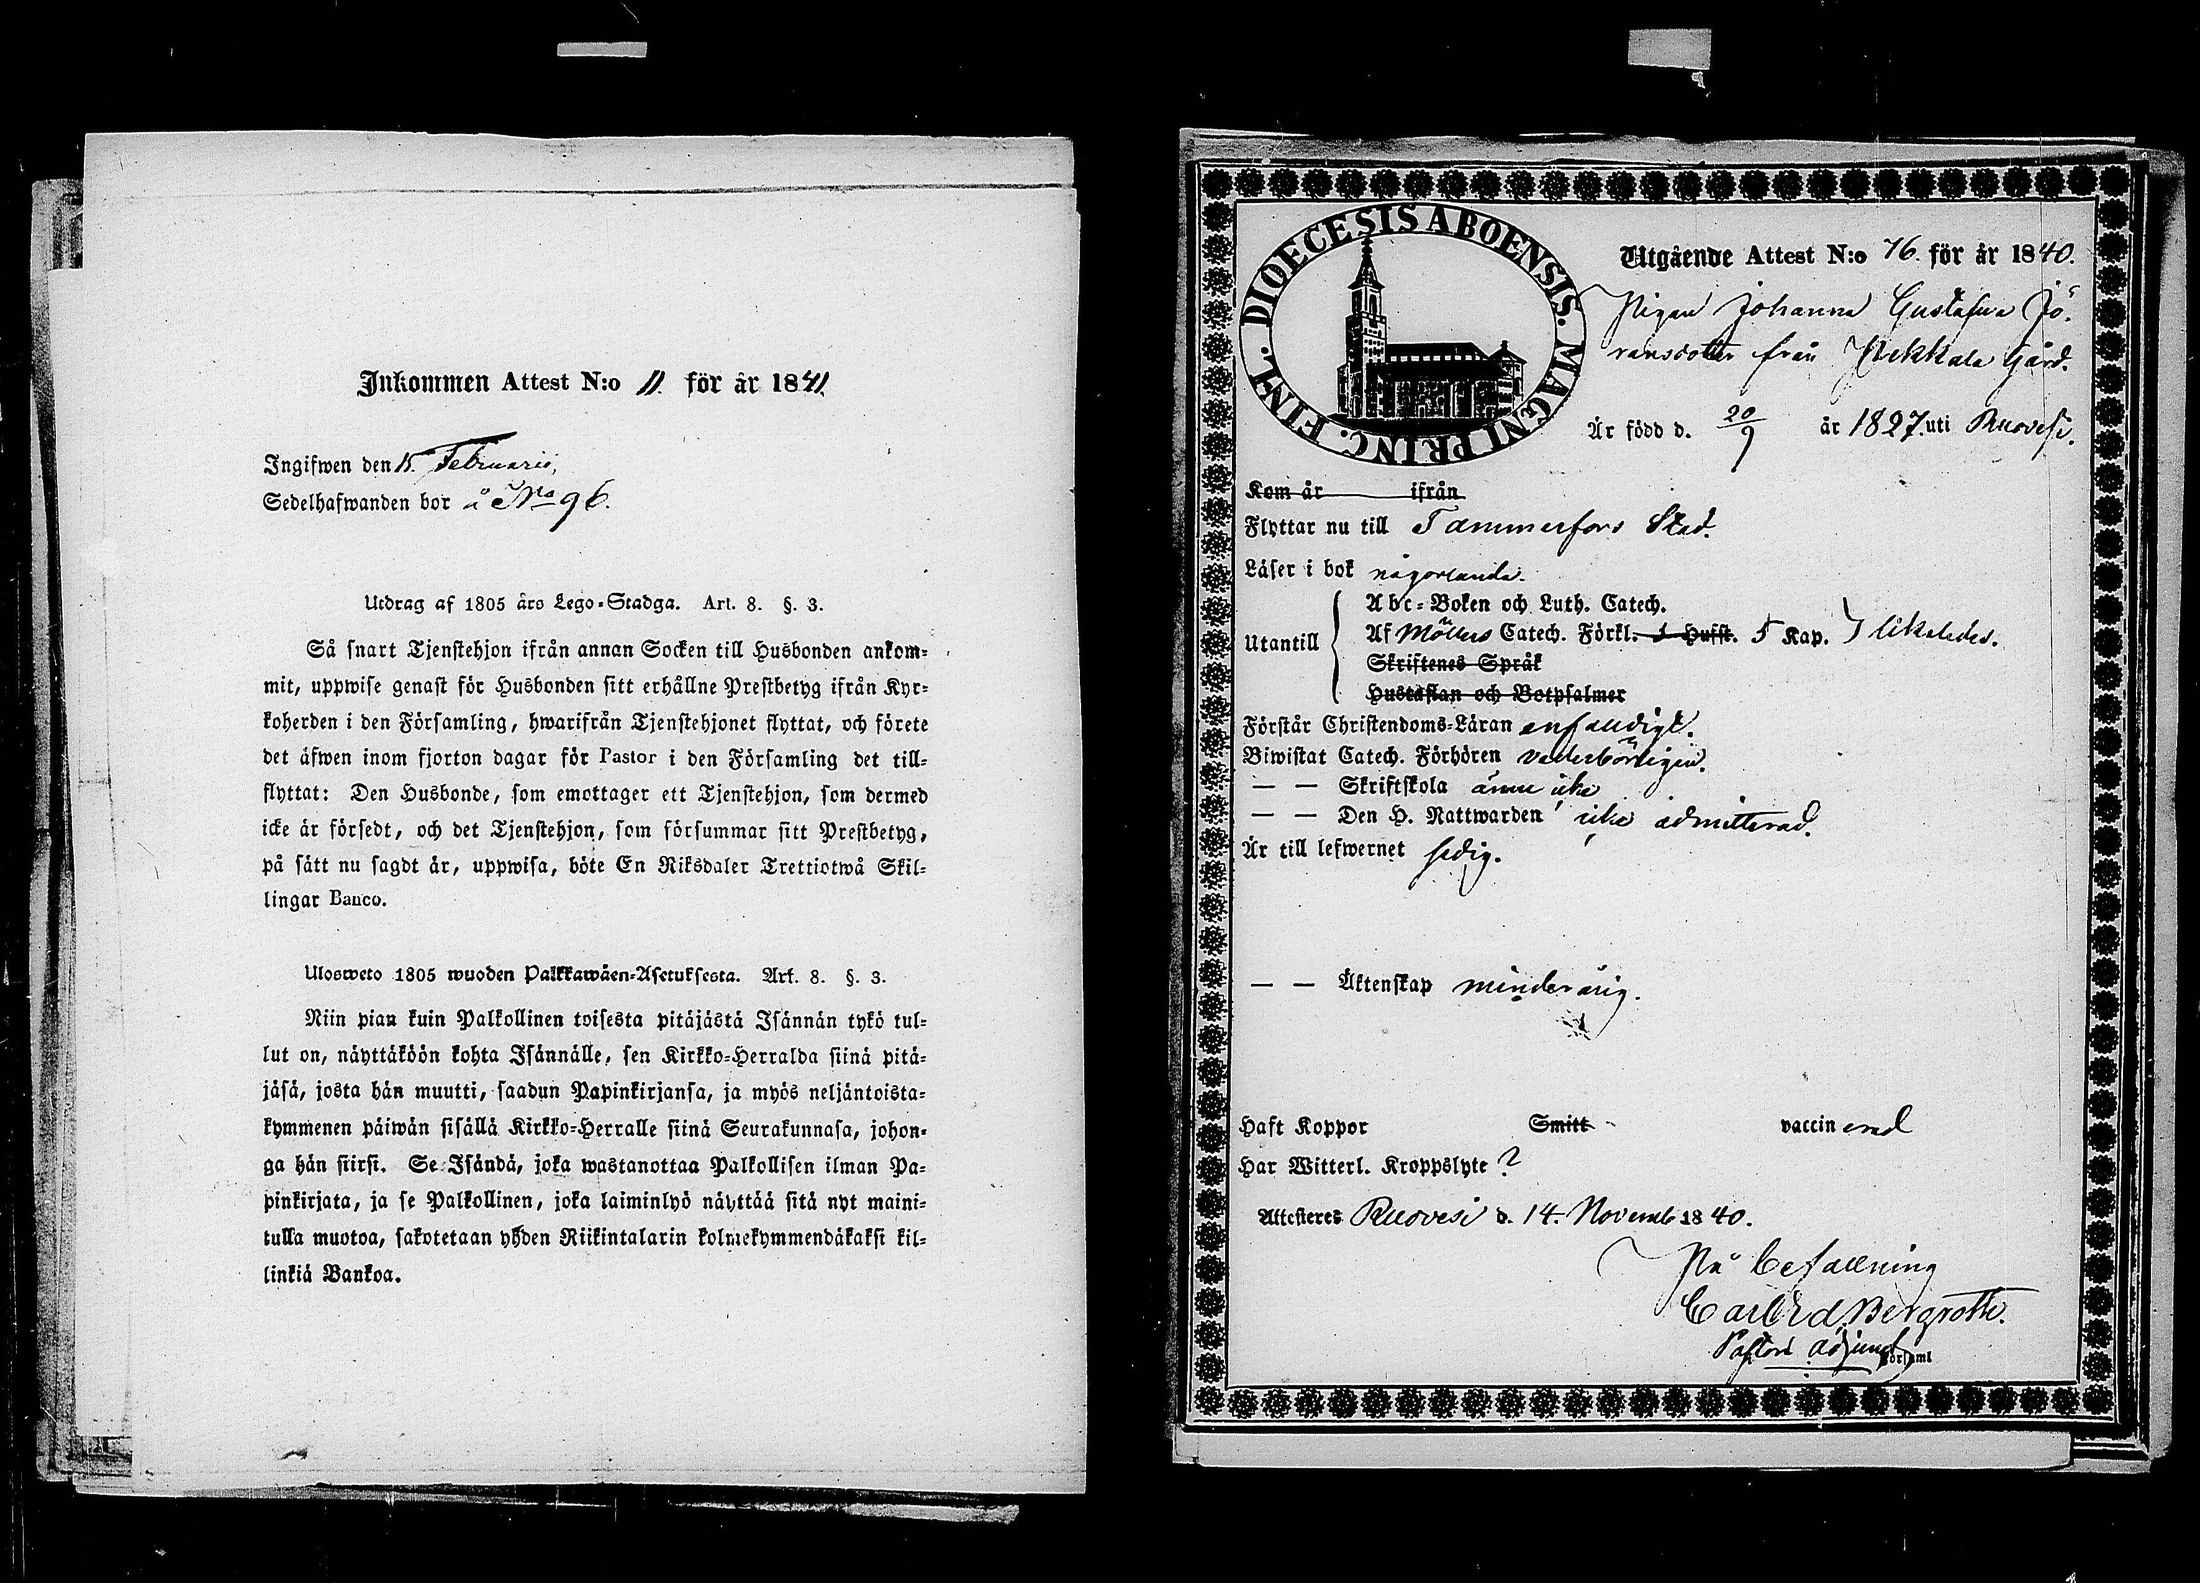 Inkommen Attest N:o 11. för år 1841.
Ingifwen den 15. Februarii,
Sedelhafwanden bor å No 96.
Utdrag af 1805 års Lego-Stadga. Art. 8. §. 3.
Så snart Tjenstehjon ifrån annan Socken till Husbonden ankom-
mit, uppwise genast för Husbonden sitt erhållne Prestbetyg ifrån Kyr-
koherden i den Församling, hwarifrån Tjenstehjonet flyttat, och förete
det äfwen inom fjorton dagar för Pastor i den Församling det till-
flyttat: Den Husbonde, som emottager ett Tjenstehjon, som dermed
icke är försedt, och det Tjenstehjon, som försummar sitt Prestbetyg,
på sätt nu sagdt är, uppwisa, böte En Riksdaler Trettiotwå Skil-
lingar Banco.
Ulosweto 1805 wuoden Palkkawäen-Asetuksesta. Art. 8. §. 3.
Niin pian kuin Palkollinen toisesta pitäjästä Isännän tykö tul-
lut on, näyttäköön kohta Isännälle, sen Kirkko-Herralda siinä pitä-
jäsä, josta hän muutti, saadun Papinkirjansa, ja myös neljäntoista-
kymmenen päiwän sisällä Kirkko-Herralle siinä Seurakunnasa, johon-
ga hän siirsi. Se Isändä, joka wastanottaa Palkollisen ilman Pa-
pinkirjata, ja se Palkollinen, joka laiminlyö näyttää sitä nyt maini-
tulla muotoa, sakotetaan yhden Riikintalarin kolmekymmendäkaksi kil-
linkiä Bankoa.
DIOECESIS ABOENSIS. MAGNI PRINC. FINL.
Utgående Attest N:o 76. för år 1840.
Pigan Johanna Gustafva Jö-
ransdotter från Pekkala Gård.
Är född d. 20/9 år 1827. uti Ruovesi.
Kom år ifrån
Flyttar nu till Tammerfors Stad.
Läser i bok någorlunda.
Abc-Boken och Luth. Catech.
Utantill Af Möllers Catech. Förkl. 1 Hufst. 5 Kap. } likaledes.
Skriftenes Språk
Hustaflan och Botpsalmer
Förstår Christendoms-Läran enfaldigt.
Biwistat Catech. Förhören vederbörligen.
— — Skriftskola ännu icke
— — Den H. Nattwarden icke admitterad.
Är till lefwernet sedig.
— — Äktenskap minderårig.
Haft Koppor Smitt- vaccinerad
Har Witterl. Kroppslyte ?
Attesteres Ruovesi d. 14. Novemb 1840.
På befallning
Carl Ed Bergroth.
Pastors adjunct
Församl